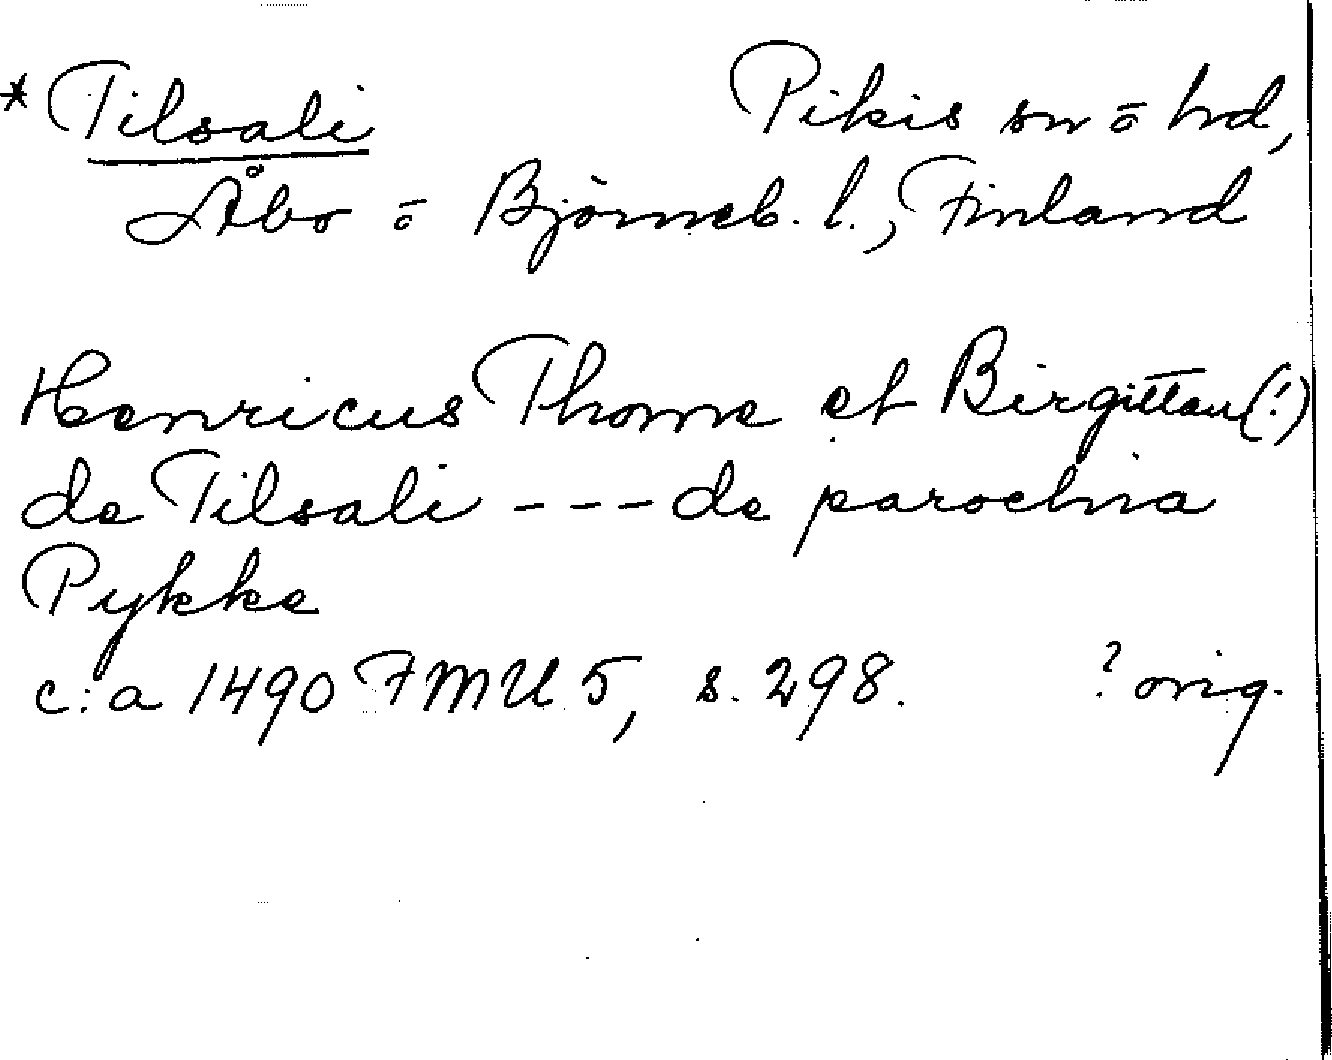 * Tilsali Pikis sn o hd,
Åbo o Björneb. l., Finland
Henricus Thome et Birgittam (!)
de Tilsali --- de parochia
Pykke
c:a 1490 FMU 5, s. 298. ? orig.